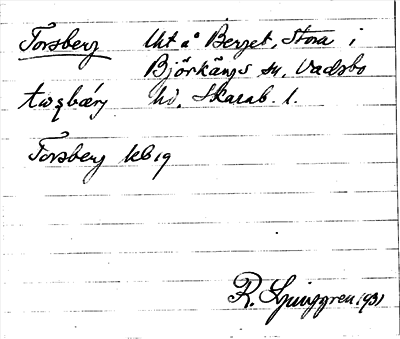 Torsberg Utt å Berget, Stora i
Björkängs sn, Vadsbo
hd, Skarab. l.
Torsberg kb 19
R. Ljunggren 1931